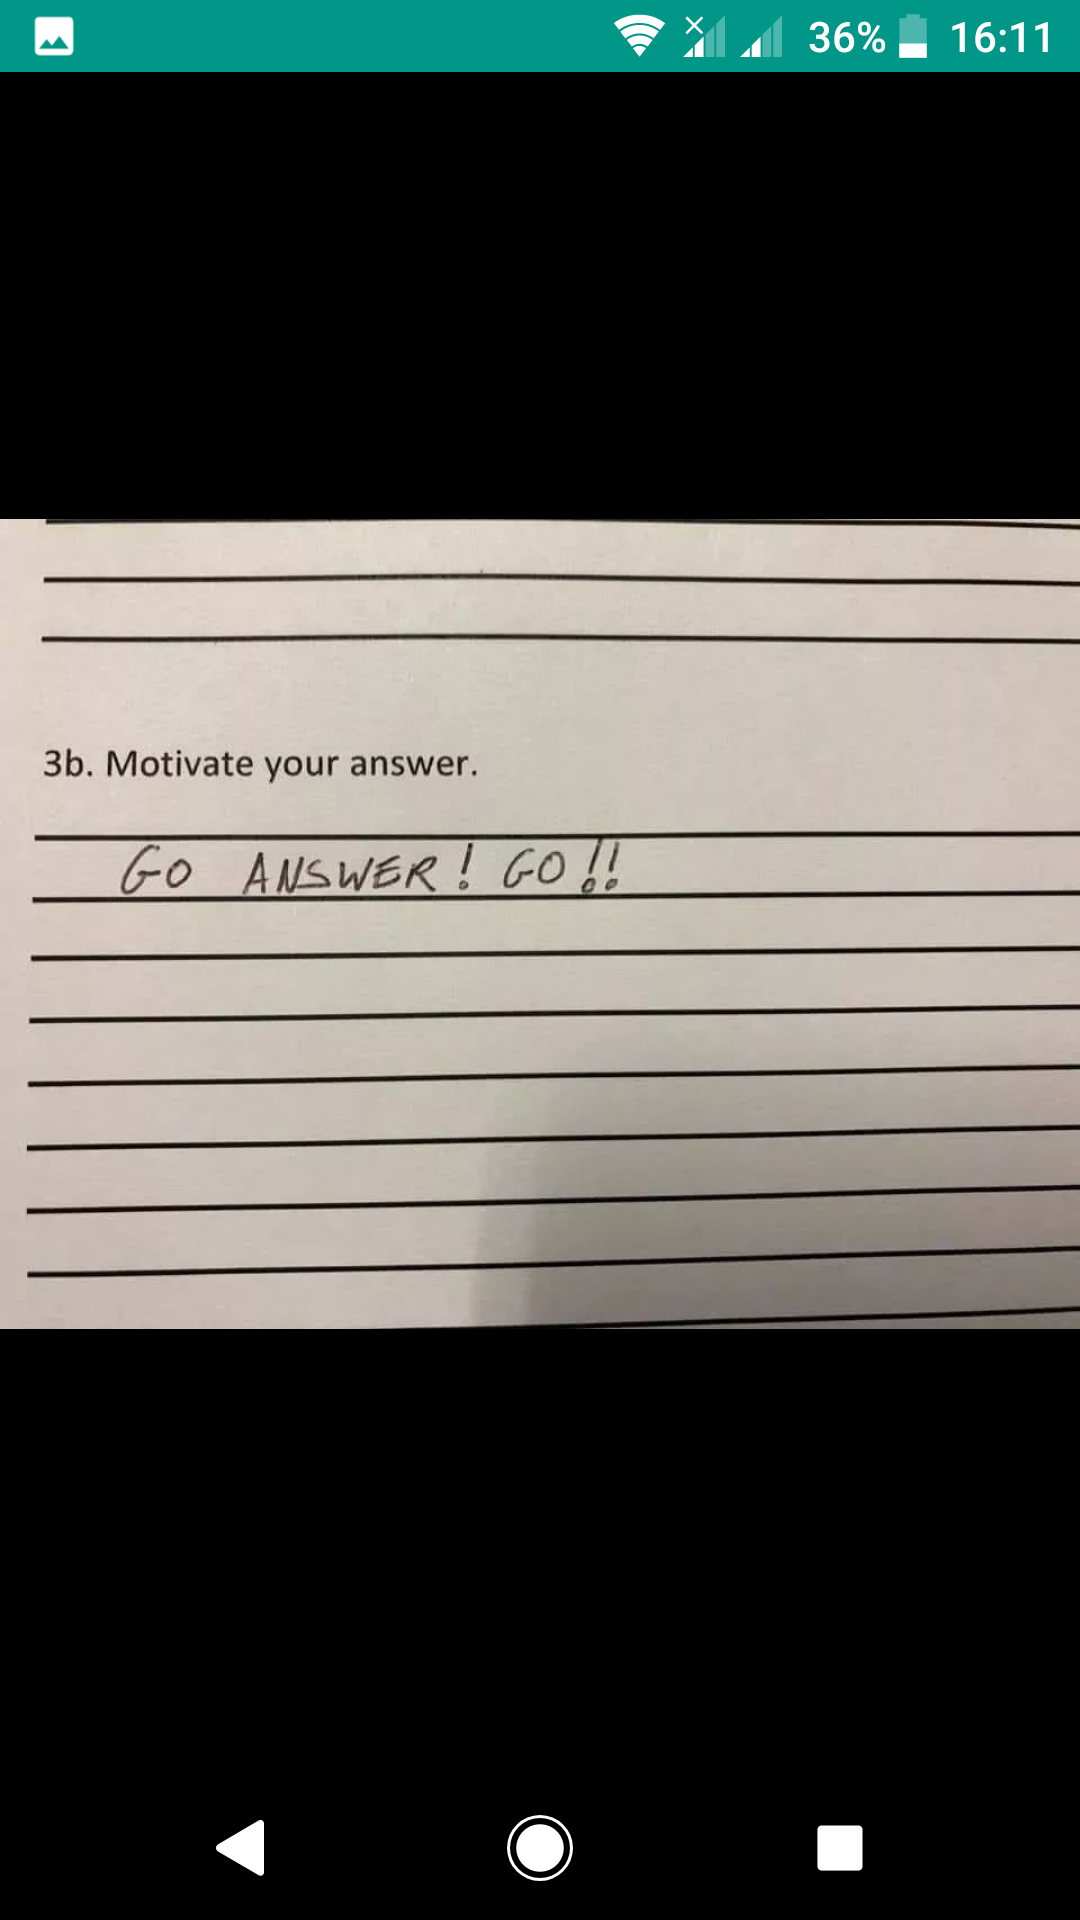 36% 16:11
3b. Motivate your answer.
GO ANSWER! GO!!